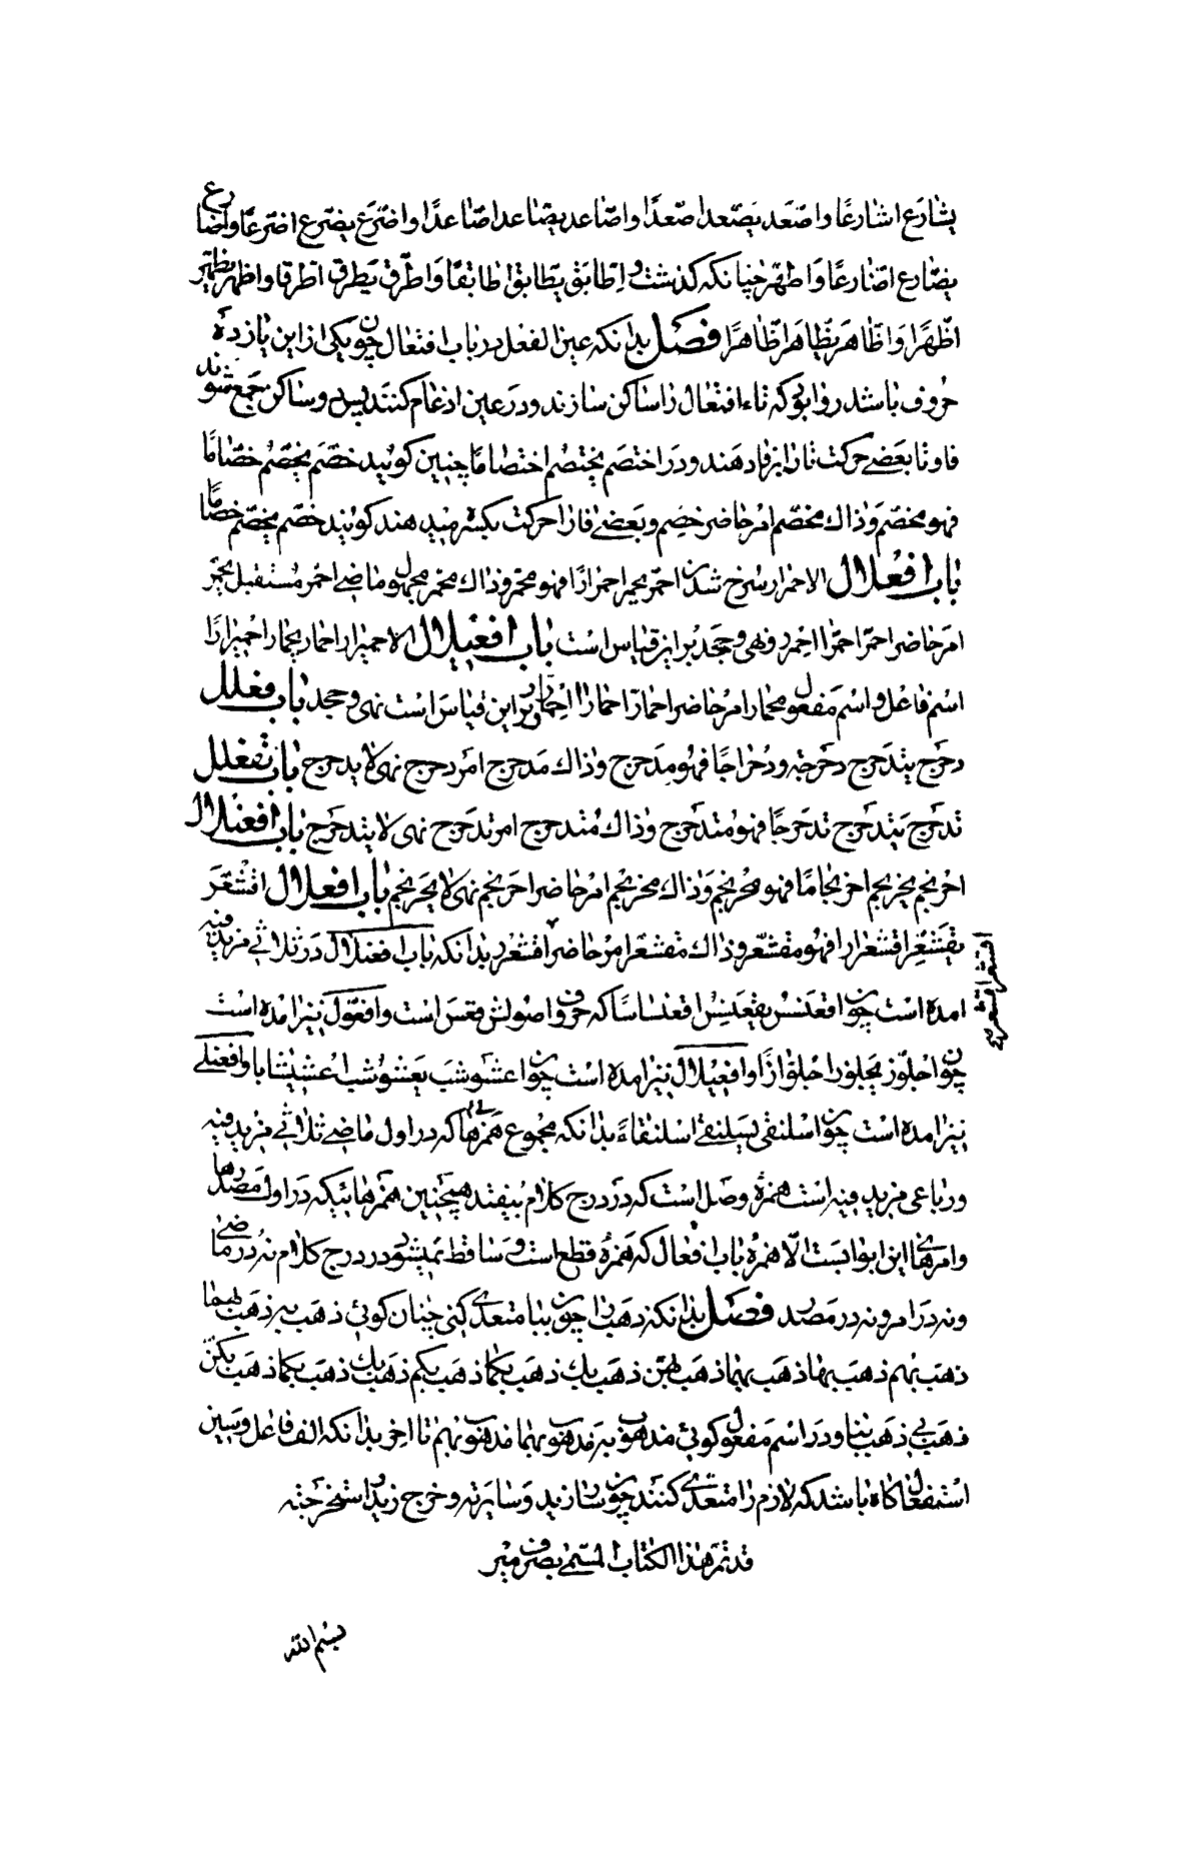 یشارع اشارعا و اصعد یصعد اصعدا و اصاعد یصاعد اصاعدا و اضرع یضرع اضرعا و اضارع
یضارع اضارعا و اطهر چنانکه کذشت و اطابق یطابق اطابقا و اطرق یطرق اطرقا و اظهر یظهر
اظهرا و اظاهر یظاهر اظاهرا فصل بدانکه عین الفعل در باب افتعال چون یکی از این یازده
حروف باشد روا بود که تاء افتعال را ساکن سازند و در عین ادغام کنند پس دو ساکن جمع شوند
فا و تا بعضی حرکت تا را بر فا دهند و در اختصم یختصم اختصاما چنین کویند خصم یخصم خصاما
فهو مخصم و ذاک مخصم امر حاضر خصم و بعضی فا را حرکت بکسره میدهند کویند خصم یخصم خصاما
باب افعلال الاحمرار سرخ شدن احمر یحمر احمرارا فهو محمر و ذاک محمر مجهول ماضی احمر مستقبل یحمر
امر حاضر احمر احمر احمرر و نهی و جحد بر این قیاس است باب افعیلال الاحمیرار احمار یحمار احمیرارا
اسم فاعل و اسم مفعول محمار امر حاضر احمار احمار احمارر و بر این قیاس است نهی و جحد باب فعلل
دحرج یتدحرج دحرجة و دحراجا فهو مدحرج و ذاک مدحرج امر دحرج نهی لا یدحرج باب تفعلل
تدحرج یتدحرج تدحرجا فهو متدحرج و ذاک متدحرج امر تدحرج نهی لا یتدحرج باب افعنلال
احرنجم یحرنجم احرنجاما فهو محرنجم و ذاک محرنجم امر حاضر احرنجم نهی لا یحرنجم باب افعلال اقشعر
یقشعر اقشعرارا فهو مقشعر و ذاک مقشعر امر حاضر اقشعرر بدانکه باب افعنلال در ثلاثی مزید فیه
اقشعر اقشعر
امده است چون اقعنسس یقعنسس اقعنساسا که حروف اصولش قعس است و افعول نیز امده است
چون اجلوز یجلوز اجلوازا و افعیلال نیز امده است چون اعشوشب یعشوشب اعشیشابا و افعنلی
نیز امده است چون اسلنقی یسلنقی اسلنقاء بدانکه مجموع همزهائی که در اول ماضی ثلاثی مزید فیه
و رباعی مزید فیه است همزه وصل است که در درج کلام بیفتد همچنین همزهائیکه در اول مصدرها
و امرهای این ابوابست الا همزه باب افعال که همزه قطع است و ساقط نمیشود در درج کلام نه در ماضی
و نه در امر و نه در مصدر فصل بدانکه ذهب را چون ببا متعدی کنی چنان کوئی ذهب به ذهب بهما
ذهب بهم ذهب بها ذهب بهما ذهب بهن ذهب بک ذهب بکما ذهب بکم ذهب بک ذهب بکما ذهب بکن
ذهب بی ذهب بنا و در اسم مفعول کوئی مذهوب به مذهوب بهما مذهوب بهم تا اخر بدانکه الف فاعل و سین
استفعال کاه باشد که لازم را متعدی کنند چون سار زید و سایرته و خرج زید استخرجته
قد تم هذا الکتاب المسمی بصرف میر
بسم الله